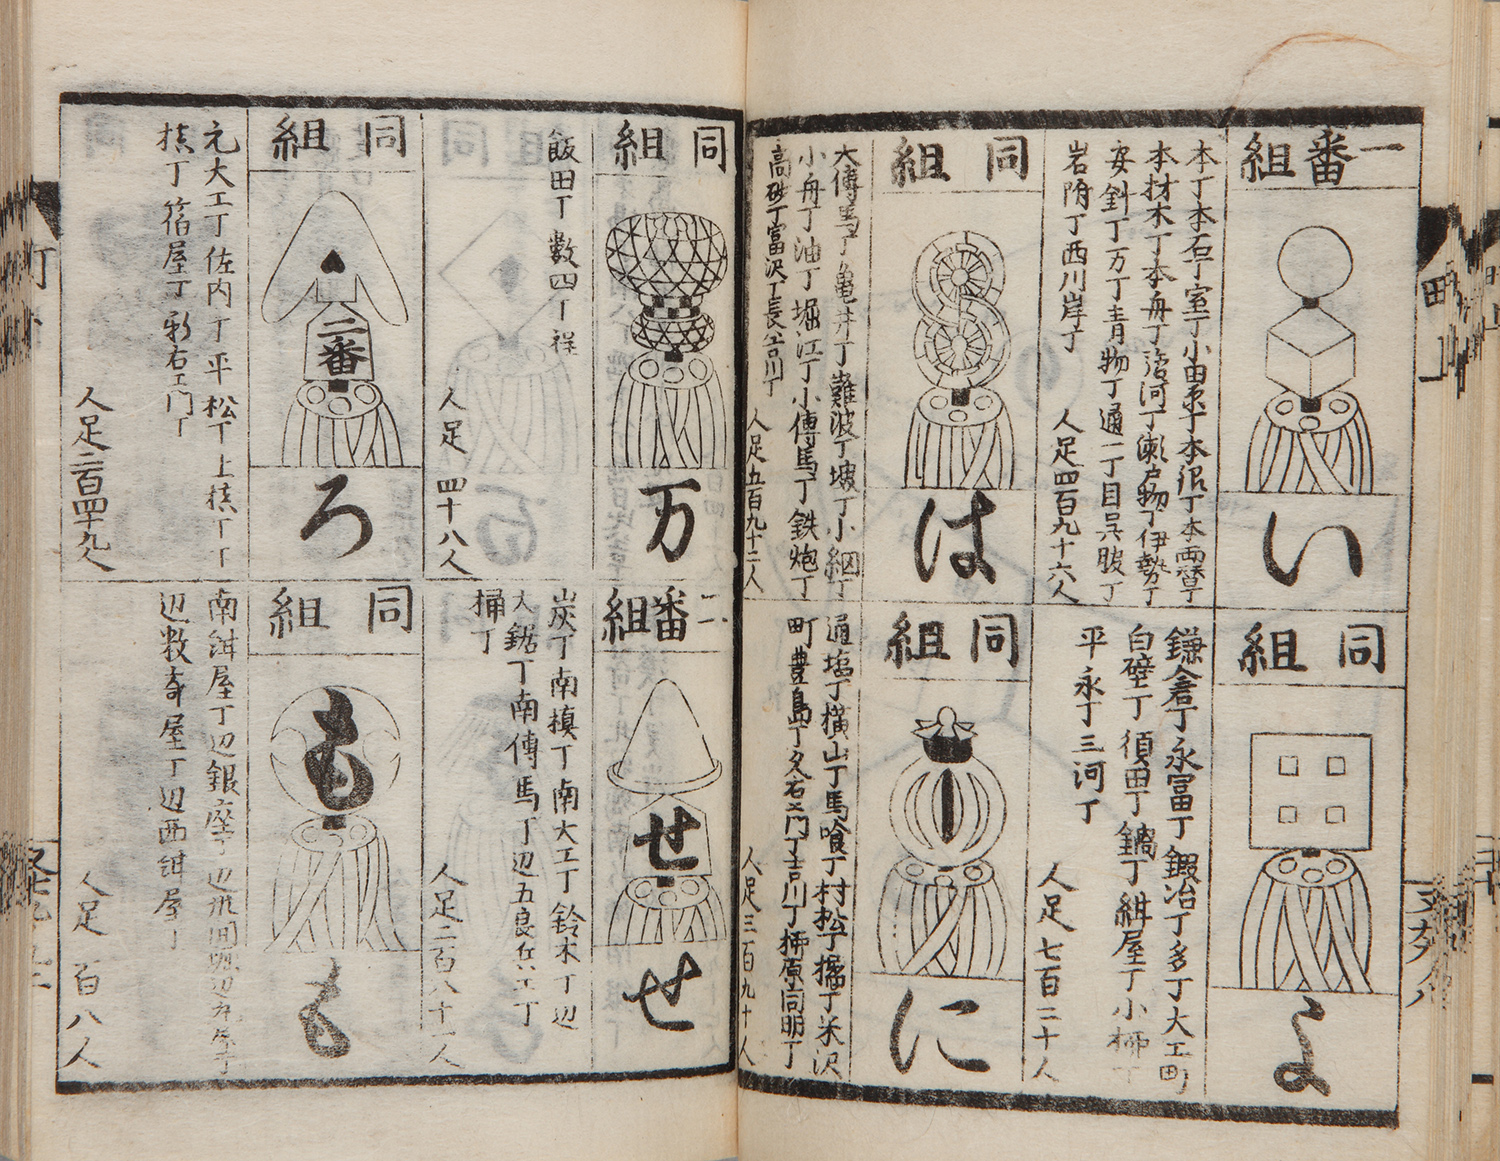 一番組
い
本丁本石丁室丁小田原丁本銀丁本両替丁
本材木丁本舟丁駿河丁瀬戸物丁伊勢丁
安針丁万丁青物丁通一丁目呉服丁
岩附丁西川岸丁
人足四百九十六人
同組
は
大傳馬丁亀井丁難波丁坡丁小網丁
小舟丁油丁堀江丁小傳馬丁鉄炮丁
高砂丁富沢丁長谷川丁
人足五百九十二人
同組
よ
鎌倉丁永冨丁鍜冶丁多丁大工町
白壁丁須田丁鍋丁紺屋丁小柳丁
平永丁三河丁
人足七百二十人
同組
に
通塩丁横山丁馬喰丁村松丁橘丁米沢
町豊島丁久右エ門丁吉川丁柳原同朋丁
人足三百九十人
同組
万
飯田丁
人足四十八人
同組
二番
ろ
元大工丁佐内丁平松丁上槙丁丁
槙丁箔屋丁新右エ門丁
人足二百四十九人
二番組
せ
せ
炭丁南槙丁南大工丁鈴木丁辺
大鋸丁南傳馬丁辺五良兵エ丁
桶丁
人足二百八十一人
同組
も
も
南紺屋丁辺銀座丁辺
辺数寄屋丁辺西紺屋丁
人足百八人